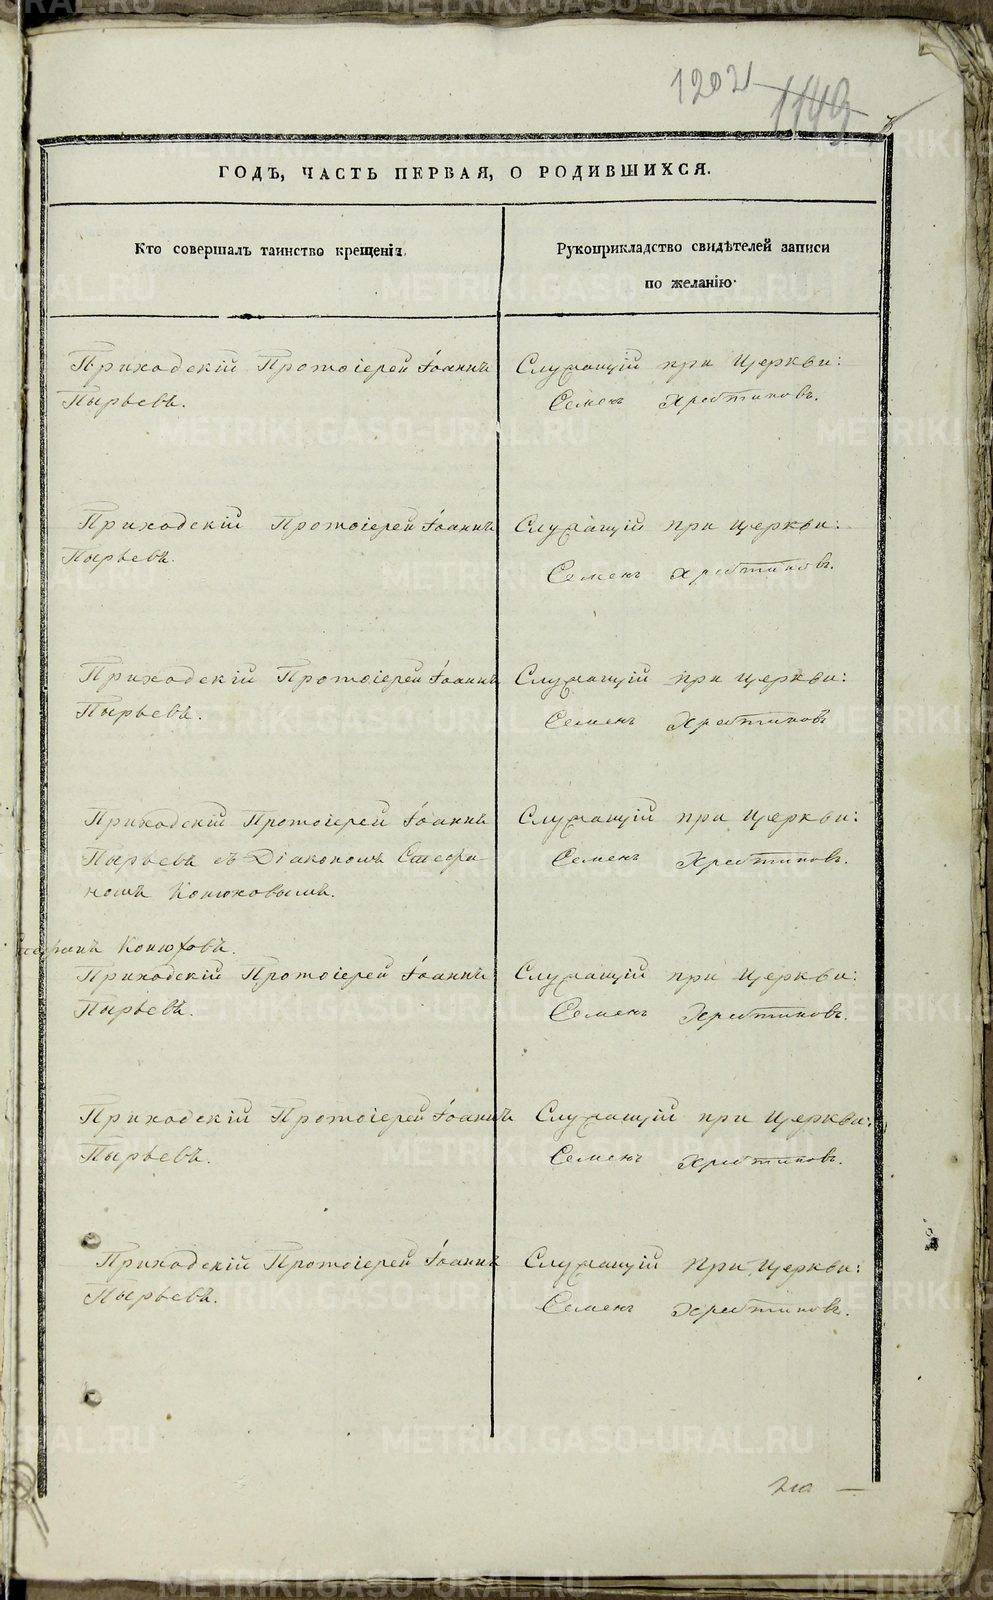 1202 1149
ГОДЪ, ЧАСТЬ ПЕРВАЯ, О РОДИВШИХСЯ.
Кто совершалъ таинство крещенія.
Рукоприкладство свидѣтелей записи
по желанію.
Приходскій Протоіерей Іоаннъ
Пырьевъ.
Служащій при Церкви:
Семенъ Хребтиковъ.
Приходскій Протоіерей Іоаннъ
Пырьевъ.
Служащій при Церкви:
Семенъ Хребтиковъ.
Приходскій Протоіерей Іоаннъ
Пырьевъ.
Служащій при Церкви:
Семенъ Хребтиковъ
Приходскій Протоіерей Іоаннъ
Пырьевъ съ Діакономъ Стефа-
номъ Конюховымъ.
Служащій при Церкви:
Семенъ Хребтиковъ.
Конюховъ.
Приходскій Протоіерей Іоаннъ
Пырьевъ.
Служащій при Церкви:
Семенъ Хребтиковъ.
Приходскій Протоіерей Іоаннъ
Пырьевъ.
Служащій при Церкви:
Семенъ Хребтиковъ.
Приходскій Протоіерей Іоаннъ
Пырьевъ.
Служащій при Церкви:
Семенъ Хребтиковъ.
METRIKI.GASO-URAL.RU